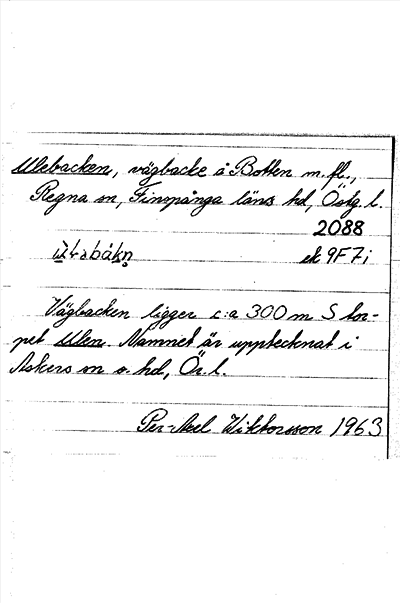 Ulebacken, vägbacke å Botten m.fl.,
Regna sn, Finspånga läns hd, Östg. l.
2088
ek 9F7i
Vägbacken ligger c:a 300 m S tor-
pet Ulen. Namnet är upptecknat i
Askers sn o. hd, Ör. l.
Per-Axel Wiktorsson 1963